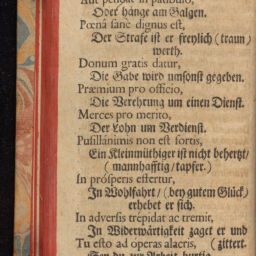 Aut pendat in patibulo,
Oder hange am Galgen.
Pœnâ sanè dignus est,
Der Strafe ist er freylich (traun)
werth.
Donum gratis datur,
Die Gabe wird umsonst gegeben.
Præmium pro officio,
Die Verehrung um einen Dienst.
Merces pro merito,
Der Lohn um Verdienst.
Pusillanimis non est fortis,
Ein Kleinmüthiger ist nicht behertzt/
(mannhafftig/tapfer.)
In prosperis effertur,
In Wohlfahrt/ (bey gutem Glück)
erhebet er sich.
In adversis trepidat ac tremit,
In Widerwärtigkeit zaget er und
Tu esto ad operas alacris, (zittert.
Sey du zur Arbeit hurtig